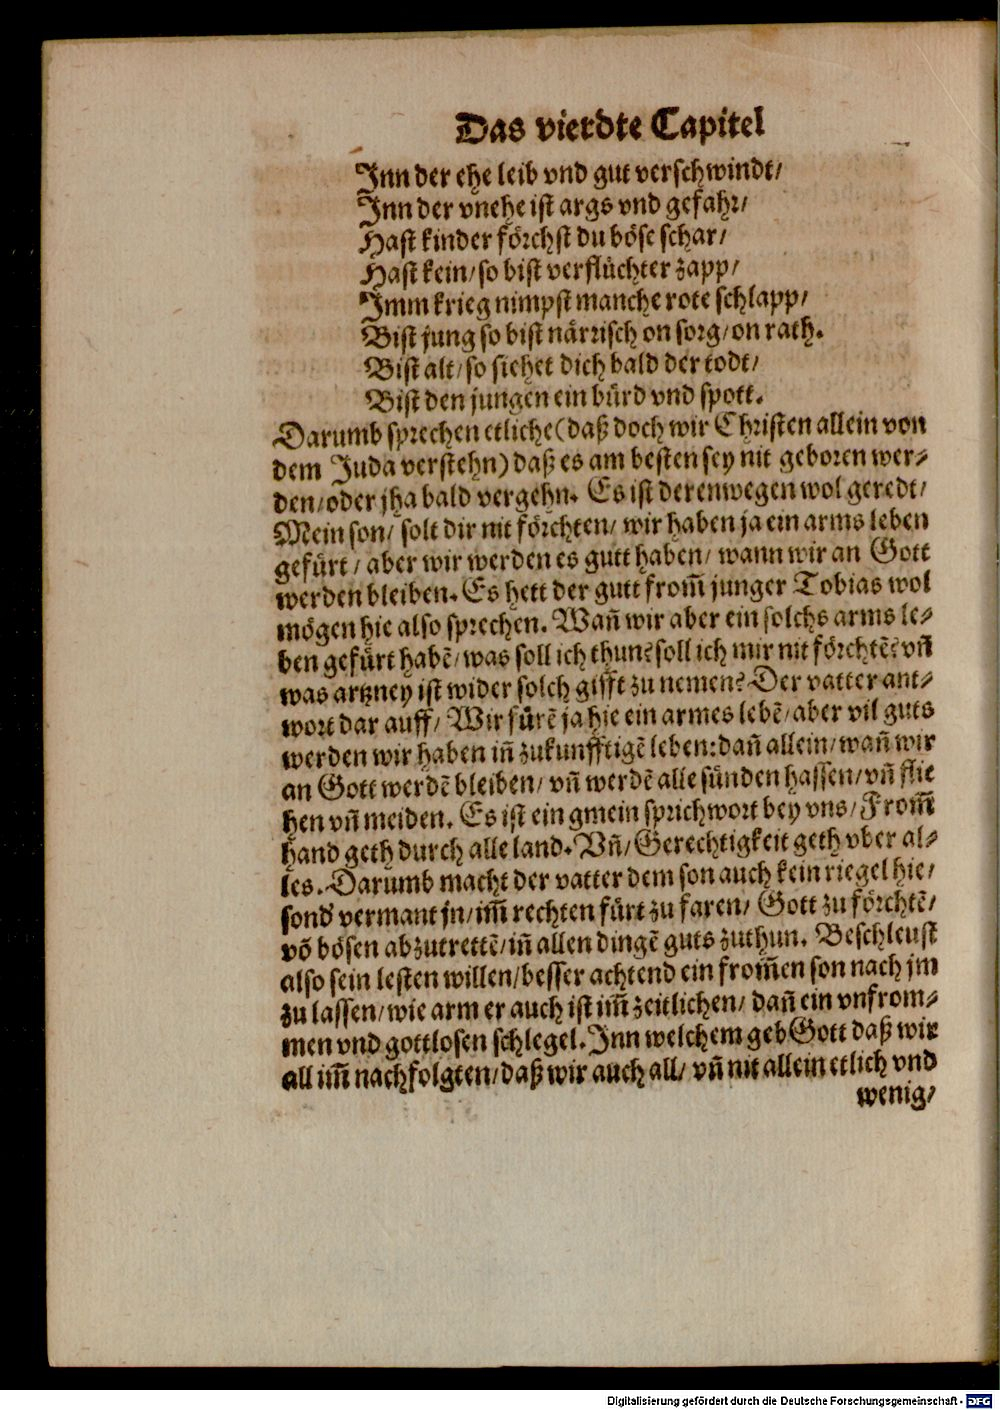 Das vierdte Capitel
Inn der ehe leib vnd gut verschwindt/
Inn der vnehe ist args vnd gefahr/
Hast kinder förchst du böse schar/
Hast kein/so bist verflüchter zapp/
Imm krieg nimpst manche rote schlapp/
Bist jung so bist närrisch on sorg/on rath.
Bist alt/so siehet dich bald der todt/
Bist den jungen ein bürd vnd spott.
Darumb sprechen etliche(daß doch wir Christen allein von
dem Juda verstehn)daß es am besten sey nit geboren wer⸗
den/oder jha bald vergehn. Es ist derenwegen wol geredt/
Mein son/ solt dir nit förchten/ wir haben ja ein arms leben
gefürt/ aber wir werden es gutt haben/ wann wir an Gott
werden bleiben. Es hett der gutt from̃ junger Tobias wol
mögen hie also sprechen. Wañ wir aber ein solchs arms le⸗
ben gefürt habẽ/was soll ich thun?soll ich mir nit förchtẽ?vñ
was artzney ist wider solch gifft zu nemen? Der vatter ant⸗
wort dar auff/ Wir fürẽ ja hie ein armes lebẽ/aber vil guts
werden wir haben iñ zukunfftigẽ leben:dañ allein/wañ wir
an Gott werdẽ bleiben/ vñ werdẽ alle sünden hassen/vñ flie
hen vñ meiden. Es ist ein gmein sprichwort bey vns/From̃
hand geth durch alle land. Vñ/Gerechtigkeit geth vber al⸗
les. Darumb macht der vatter dem son auch kein riegel hie/
sond' vermant jn/im̃ rechten fürt zu faren/ Gott zu förchtẽ/
võ bösen abzutrettẽ/iñ allen dingẽ guts zuthun. Beschleust
also sein lesten willen/besser achtend ein from̃en son nach jm
zu lassen/wie arm er auch ist im̃ zeitlichen/ dañ ein vnfrom⸗
men vnd gottlosen schlegel. Inn welchem geb Gott daß wir
all im̃ nachfolgten/daß wir auch all/ vñ nit allein etlich vnd
wenig/
Digitalisierung gefördert durch die Deutsche Forschungsgemeinschaft - DFG